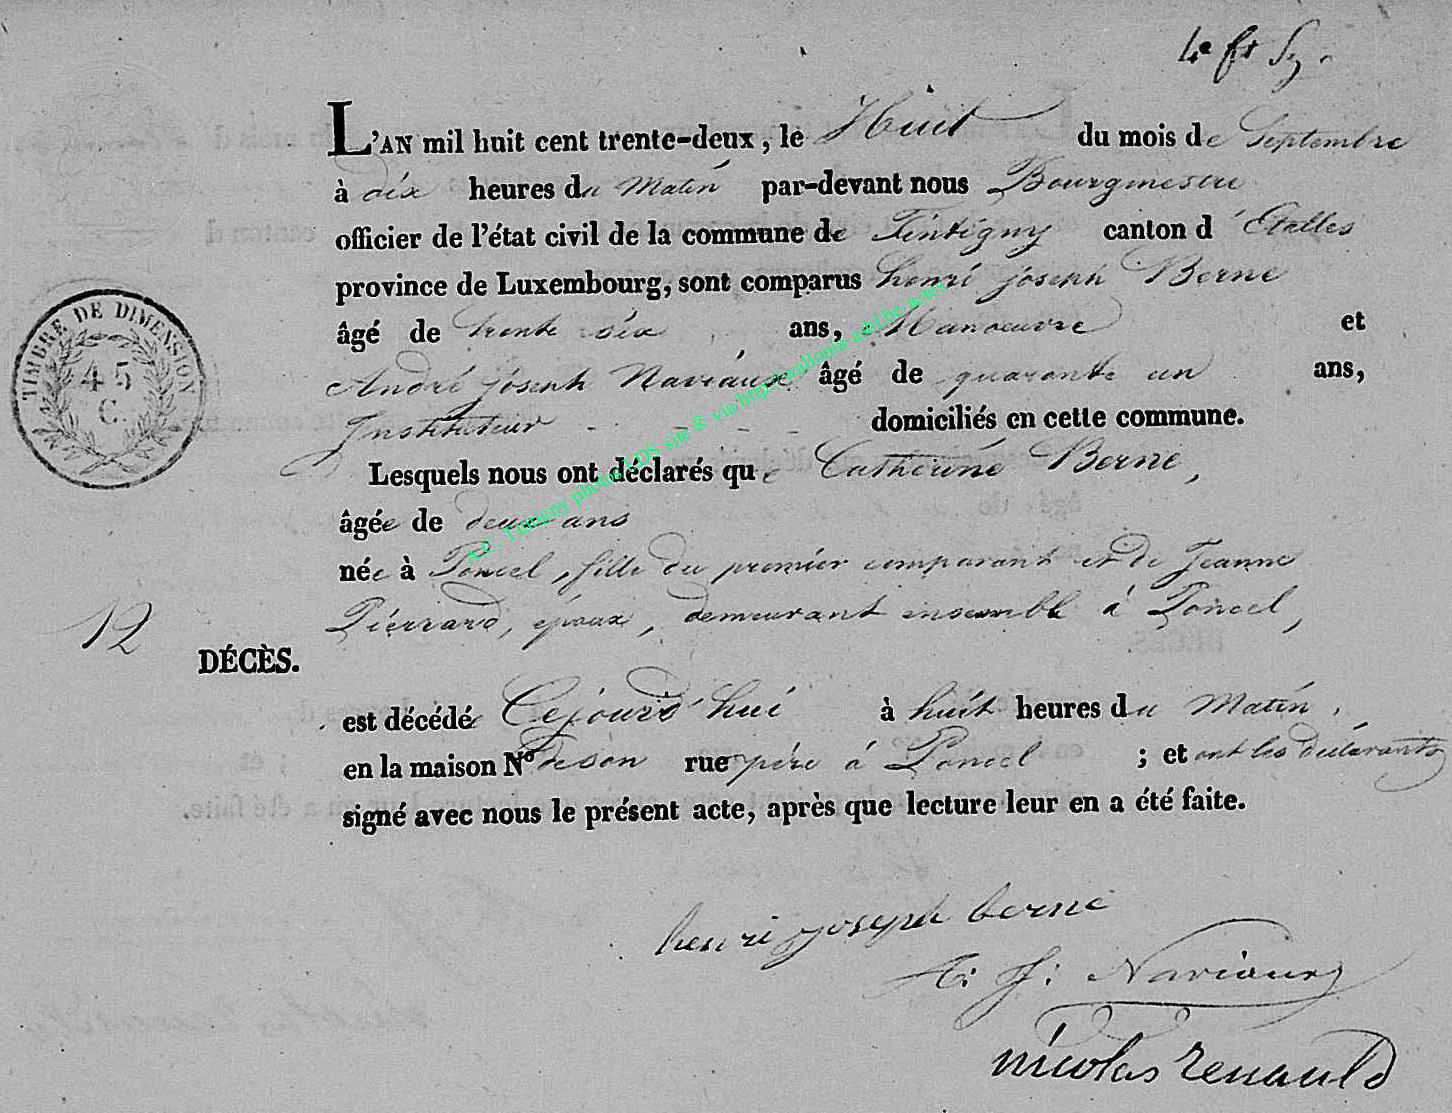 L'AN mil huit cent trente-deux, le Huit du mois de Septembre
à dix heures du Matin par-devant nous Bourgmestre
officier de l'état civil de la commune de Tintigny canton d'Etalles
province de Luxembourg, sont comparus henri joseph Berne
âgé de trente six ans, Manoeuvre et
André joseph Naviaux âgé de quarante un ans,
Instituteur domiciliés en cette commune.
Lesquels nous ont déclarés que Catherine Berne,
âgée de deux ans
née à Poncel, fille du premier comparant et de Jeanne
Piérrard, époux, demeurant ensemble à Poncel,
12
DÉCÈS.
est décédée Cejourd'hui à huit heures du Matin,
en la maison N° de son rue père à Poncel ; et ont les déclarants
signé avec nous le présent acte, après que lecture leur en a été faite.
henri joseph berne
A: J: Naviaux
nicolas renauld
TIMBRE DE DIMENSION
45
C.
A.C. Tintigny photos LDS site ® via http://wallonia-asbl.be/actes